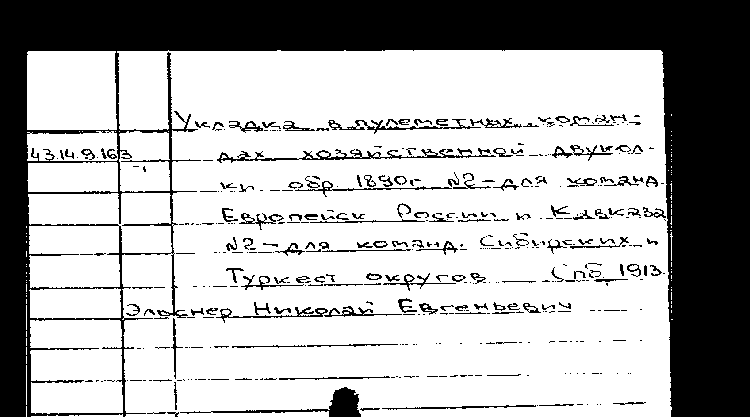 Укладка в пулеметных коман-
43.14.9.163 дах хозяйственной двукол-
ки обр 1890г. №2-для команд
Европейск России и Кавказа
№2-для команд. Сибирских и
Туркест округов Спб, 1913
Эльснер Николай Евгеньевич